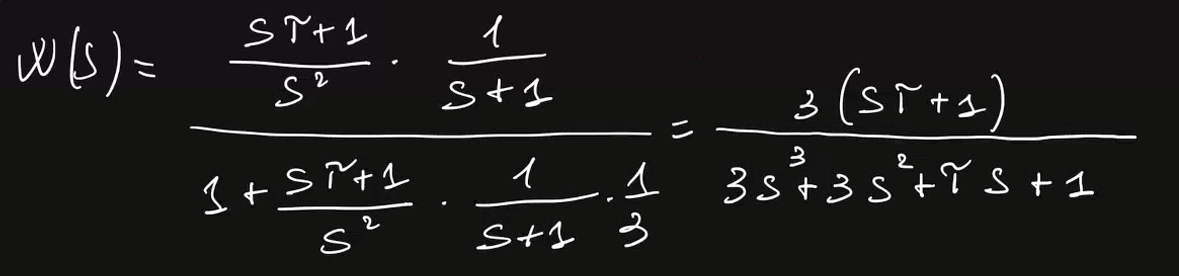 W(s) = \frac{\frac{sτ+1}{s^2} \cdot \frac{1}{s+1}}{1 + \frac{sτ+1}{s^2} \cdot \frac{1}{s+1} \cdot \frac{1}{3}} = \frac{3(sτ+1)}{3s^3+3s^2+τs+1}